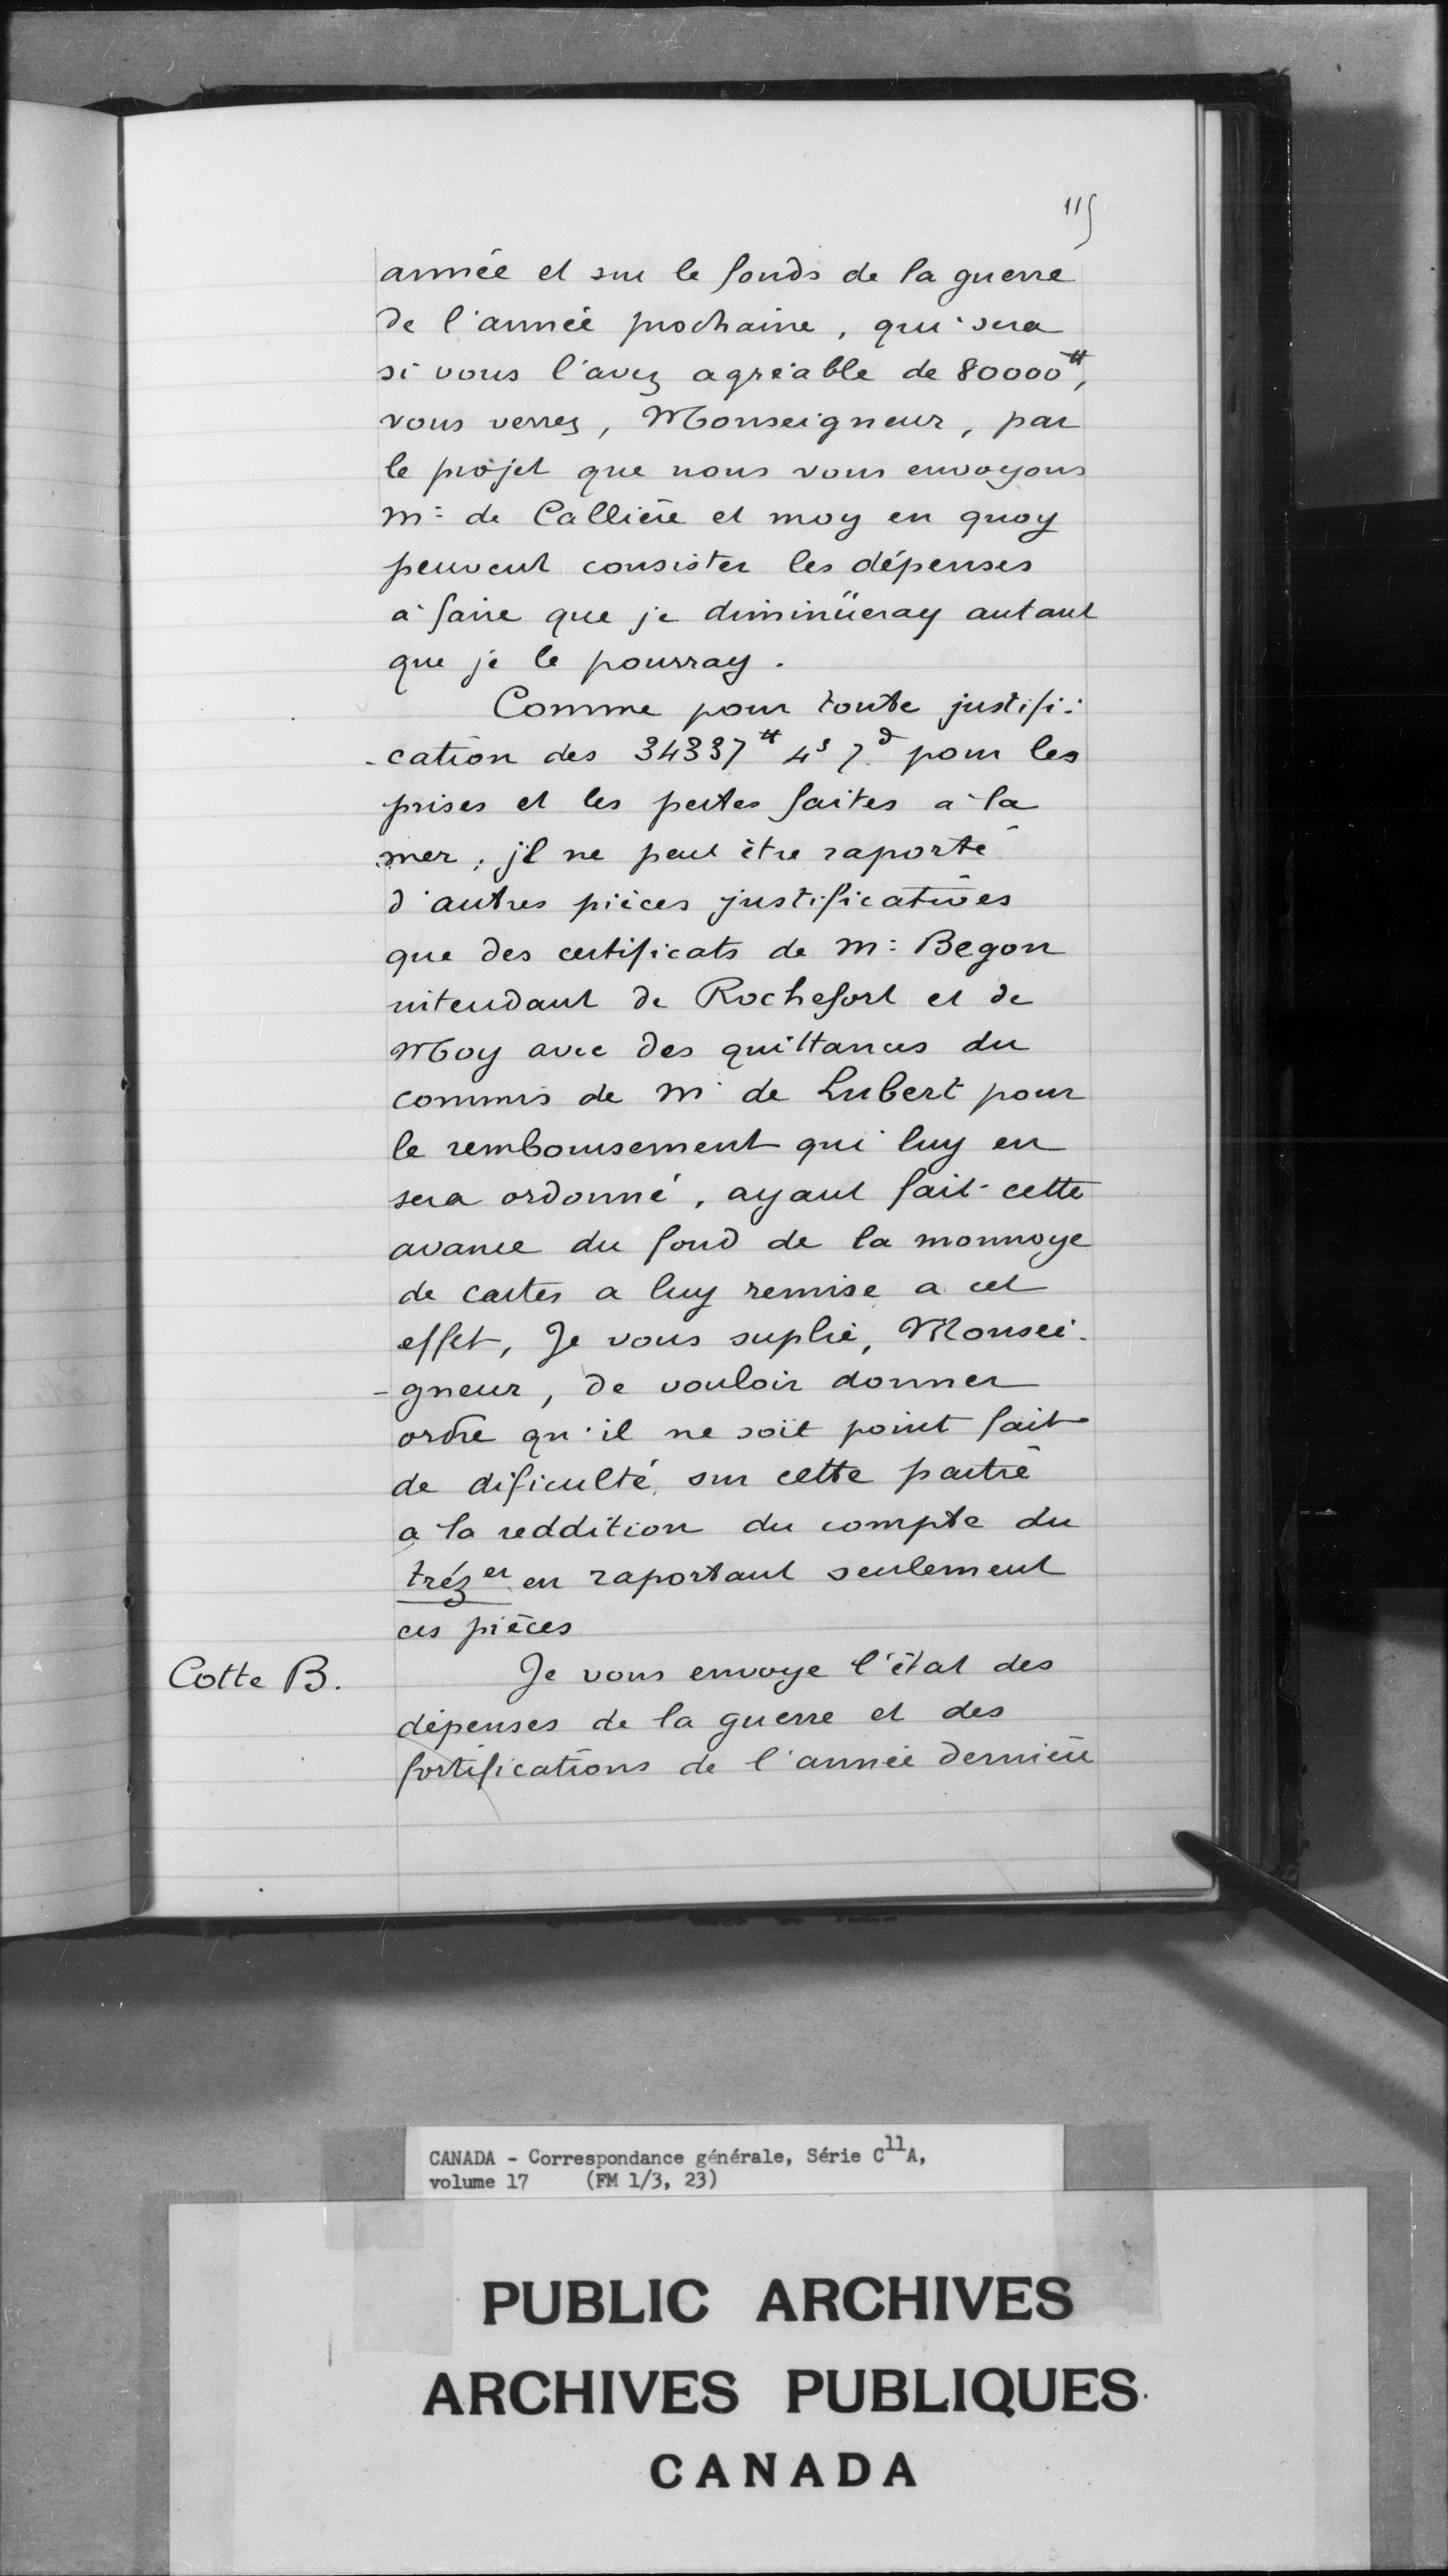 115
année et sur le fonds de la guerre
de l'année prochaine, qui sera
si vous l'avez agréable de 80000#,
vous verrez, Monseigneur, par
le projet que nous vous envoyons
Mr de Callière et moy en quoy
peuvent consister les dépenses
à faire que je diminüeray autant
que je le pourray.
Comme pour toute justifi-
-cation des 34337# 4s 7d pour les
prises et les pertes faites à la
mer, jl ne peut être raporté
d'autres pièces justificatives
que des certificats de Mr Begon
intendant de Rochefort et de
Moy avec des quittances du
commis de Mr de Lubert pour
le remboursement qui luy en
sera ordonné, ayant fait cette
avance du fond de la monnoye
de cartes a luy remise a cet
effet, Je vous suplie, Monsei-
-gneur, de vouloir donner
ordre qu'il ne soit point fait
de dificulté sur cette partie
a la reddition du compte du
tréz er en raportant seulement
ces pièces
Cotte B. Je vous envoye l'état des
dépenses de la guerre et des
fortifications de l'année dernière
CANADA - Correspondance générale, Série C11A,
volume 17 (FM 1/3, 23)
PUBLIC ARCHIVES
ARCHIVES PUBLIQUES
CANADA